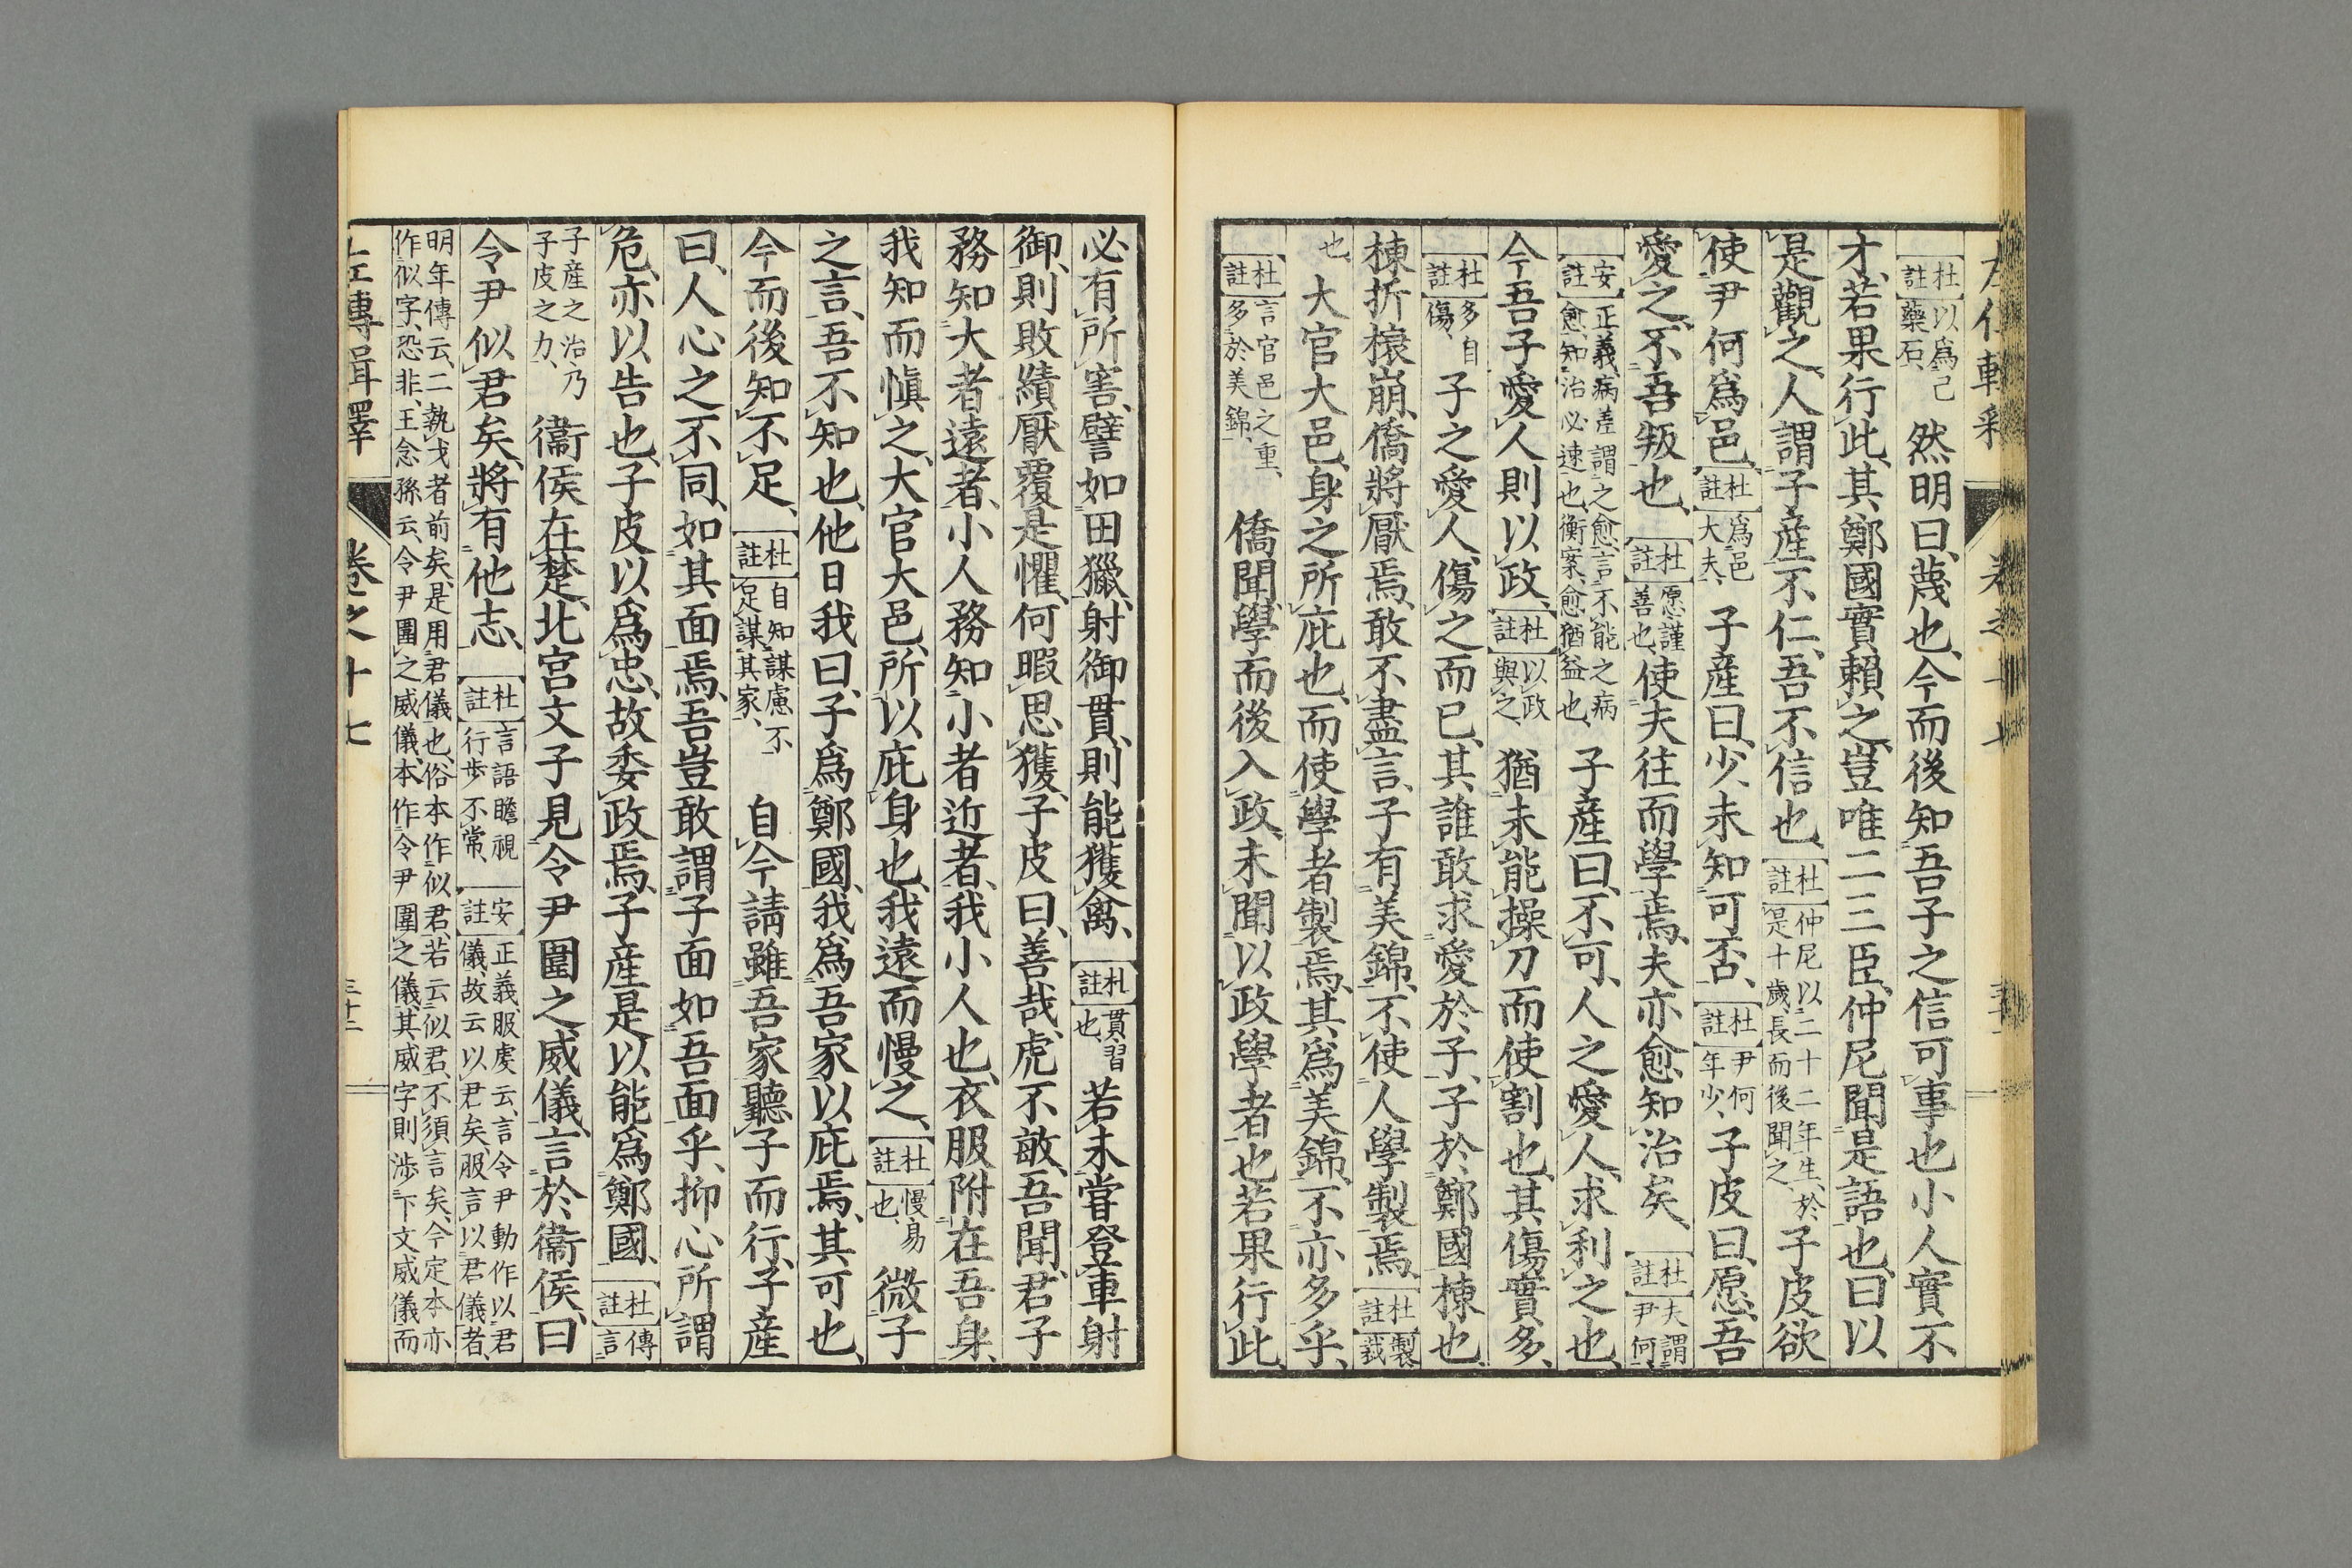 杜註以爲己藥石、然明曰、蔑也、今而後知吾子之信可事也、小人實不
才、若果行此、其鄭國實賴之、豈唯二三臣、仲尼聞是語也、曰、以
是觀之、人謂子産不仁、吾不信也、杜註仲尼以二十二年生、於是十歲、長而後聞之、子皮欲
使尹何爲邑、杜註爲邑大夫、子産曰、少、未知可否、杜註尹何年少、子皮曰、愿、吾
愛之、不吾叛也、杜註愿謹善也、使夫往而學焉、夫亦愈知治矣、杜註夫謂尹何
安註正義、病差謂之愈、言不能之病愈、知治必速也、衡案、愈猶益也、子産曰、不可、人之愛人、求利之也、
今吾子愛人則以政、杜註以政與之、猶未能操刀而使割也、其傷實多、
杜註多自傷、子之愛人、傷之而已、其誰敢求愛於子、子於鄭國棟也、
棟折榱崩、僑將厭焉、敢不盡言、子有美錦、不使人學製焉、杜註製裁
也、大官大邑、身之所庇也、而使學者製焉、其爲美錦、不亦多乎、
杜註言官邑之重、多於美錦、僑聞學而後入政、未聞以政學者也、若果行此、
必有所害、譬如田獵、射御貫、則能獲禽、杜註貫習也、若未嘗登車射
御、則敗績厭覆是懼、何暇思獲、子皮曰、善哉、虎不敏、吾聞、君子
務知大者遠者、小人務知小者近者、我小人也、衣服附在吾身、
我知而愼之、大官大邑、所以庇身也、我遠而慢之、杜註慢易也、微子
之言、吾不知也、他日我曰、子爲鄭國、我爲吾家、以庇焉、其可也、
今而後知不足、杜註自知謀慮不足謀其家、自今請雖吾家聽子而行、子産
曰、人心之不同、如其面焉、吾豈敢謂子面如吾面乎、抑心所謂
危、亦以告也、子皮以爲忠、故委政焉、子産是以能爲鄭國、杜註傳言
子産之治乃子皮之力、衞侯在楚、北宮文子見令尹圍之威儀、言於衞侯、曰、
令尹似君矣、將有他志、杜註言語瞻視行步不常、安註正義、服虔云、言令尹動作以君儀、故云以君矣、服言以君儀者、
明年傳云、二執戈者前矣、是用君儀也、俗本作似君、若云似君、不須言矣、今定本亦作似字、恐非、王念孫云、令尹圍之威儀、本作令尹圍之儀、其威字則涉下文威儀而
左傳輯釋 卷之十七 三十二